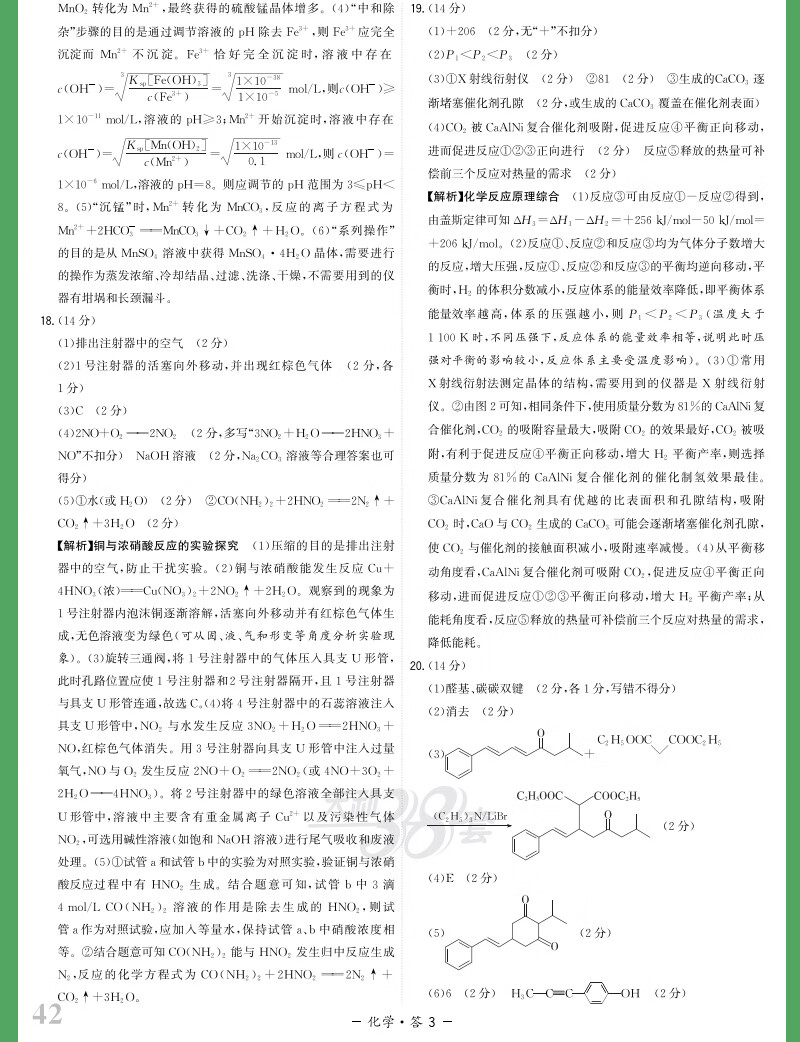 MnO₂ 转化为 Mn²⁺,最终获得的硫酸锰晶体增多。(4)“中和除
杂”步骤的目的是通过调节溶液的 pH 除去 Fe³⁺,则 Fe³⁺ 应完全
沉淀而 Mn²⁺ 不沉淀。Fe³⁺ 恰好完全沉淀时,溶液中存在
c(OH⁻)=∛(Ksp[Fe(OH)₃]/c(Fe³⁺))=∛(1×10⁻³⁸/1×10⁻⁵) mol/L,则c(OH⁻)≥
1×10⁻¹¹ mol/L,溶液的 pH≥3;Mn²⁺ 开始沉淀时,溶液中存在
c(OH⁻)=√(Ksp[Mn(OH)₂]/c(Mn²⁺))=√(1×10⁻¹³/0.1) mol/L,则 c(OH⁻)=
1×10⁻⁶ mol/L,溶液的 pH=8。则应调节的 pH 范围为 3≤pH<
8。(5)“沉锰”时,Mn²⁺ 转化为 MnCO₃,反应的离子方程式为
Mn²⁺+2HCO₃⁻══MnCO₃↓+CO₂↑+H₂O。(6)“系列操作”
的目的是从 MnSO₄ 溶液中获得 MnSO₄·4H₂O 晶体,需要进行
的操作为蒸发浓缩、冷却结晶、过滤、洗涤、干燥,不需要用到的仪
器有坩埚和长颈漏斗。
18.(14 分)
(1)排出注射器中的空气 (2 分)
(2)1 号注射器的活塞向外移动,并出现红棕色气体 (2 分,各
1 分)
(3)C (2 分)
(4)2NO+O₂══2NO₂ (2 分,多写“3NO₂+H₂O══2HNO₃+
NO”不扣分) NaOH 溶液 (2 分,Na₂CO₃ 溶液等合理答案也可
得分)
(5)①水(或 H₂O) (2 分) ②CO(NH₂)₂+2HNO₂══2N₂↑+
CO₂↑+3H₂O (2 分)
【解析】铜与浓硝酸反应的实验探究 (1)压缩的目的是排出注射
器中的空气,防止干扰实验。(2)铜与浓硝酸能发生反应 Cu+
4HNO₃(浓)══Cu(NO₃)₂+2NO₂↑+2H₂O。观察到的现象为
1 号注射器内泡沫铜逐渐溶解,活塞向外移动并有红棕色气体生
成,无色溶液变为绿色(可从固、液、气和形变等角度分析实验现
象)。(3)旋转三通阀,将 1 号注射器中的气体压入具支 U 形管,
此时孔路位置应使 1 号注射器和 2 号注射器隔开,且 1 号注射器
与具支 U 形管连通,故选 C。(4)将 4 号注射器中的石蕊溶液注入
具支 U 形管中,NO₂ 与水发生反应 3NO₂+H₂O══2HNO₃+
NO,红棕色气体消失。用 3 号注射器向具支 U 形管中注入过量
氧气,NO 与 O₂ 发生反应 2NO+O₂══2NO₂(或 4NO+3O₂+
2H₂O══4HNO₃)。将 2 号注射器中的绿色溶液全部注入具支
U 形管中,溶液中主要含有重金属离子 Cu²⁺ 以及污染性气体
NO₂,可选用碱性溶液(如饱和 NaOH 溶液)进行尾气吸收和废液
处理。(5)①试管 a 和试管 b 中的实验为对照实验,验证铜与浓硝
酸反应过程中有 HNO₂ 生成。结合题意可知,试管 b 中 3 滴
4 mol/L CO(NH₂)₂ 溶液的作用是除去生成的 HNO₂,则试
管 a 作为对照试验,应加入等量水,保持试管 a、b 中硝酸浓度相
等。②结合题意可知 CO(NH₂)₂ 能与 HNO₂ 发生归中反应生成
N₂,反应的化学方程式为 CO(NH₂)₂+2HNO₂══2N₂↑+
CO₂↑+3H₂O。
19.(14 分)
(1)+206 (2 分,无“+”不扣分)
(2)P₁<P₂<P₃ (2 分)
(3)①X 射线衍射仪 (2 分) ②81 (2 分) ③生成的CaCO₃ 逐
渐堵塞催化剂孔隙 (2 分,或生成的 CaCO₃ 覆盖在催化剂表面)
(4)CO₂ 被 CaAlNi 复合催化剂吸附,促进反应④平衡正向移动,
进而促进反应①②③正向进行 (2 分) 反应⑤释放的热量可补
偿前三个反应对热量的需求 (2 分)
【解析】化学反应原理综合 (1)反应③可由反应①-反应②得到,
由盖斯定律可知 ΔH₃=ΔH₁-ΔH₂=+256 kJ/mol-50 kJ/mol=
+206 kJ/mol。(2)反应①、反应②和反应③均为气体分子数增大
的反应,增大压强,反应①、反应②和反应③的平衡均逆向移动,平
衡时,H₂ 的体积分数减小,反应体系的能量效率降低,即平衡体系
能量效率越高,体系的压强越小,则 P₁<P₂<P₃(温度大于
1 100 K 时,不同压强下,反应体系的能量效率相等,说明此时压
强对平衡的影响较小,反应体系主要受温度影响)。(3)①常用
X 射线衍射法测定晶体的结构,需要用到的仪器是 X 射线衍射
仪。②由图 2 可知,相同条件下,使用质量分数为 81%的 CaAlNi 复
合催化剂,CO₂ 的吸附容量最大,吸附 CO₂ 的效果最好,CO₂ 被吸
附,有利于促进反应④平衡正向移动,增大 H₂ 平衡产率,则选择
质量分数为 81%的 CaAlNi 复合催化剂的催化制氢效果最佳。
③CaAlNi 复合催化剂具有优越的比表面积和孔隙结构,吸附
CO₂ 时,CaO 与 CO₂ 生成的 CaCO₃ 可能会逐渐堵塞催化剂孔隙,
使 CO₂ 与催化剂的接触面积减小,吸附速率减慢。(4)从平衡移
动角度看,CaAlNi 复合催化剂可吸附 CO₂,促进反应④平衡正向
移动,进而促进反应①②③平衡正向移动,增大 H₂ 平衡产率;从
能耗角度看,反应⑤释放的热量可补偿前三个反应对热量的需求,
降低能耗。
20.(14 分)
(1)醛基、碳碳双键 (2 分,各 1 分,写错不得分)
(2)消去 (2 分)
(3) O + C₂H₅OOC COOC₂H₅
(C₂H₅)₃N/LiBr C₂H₅OOC COOC₂H₅ O (2 分)
(4)E (2 分)
(5) O O (2 分)
(6)6 (2 分) H₃C—C≡C— —OH (2 分)
42
— 化学·答 3 —